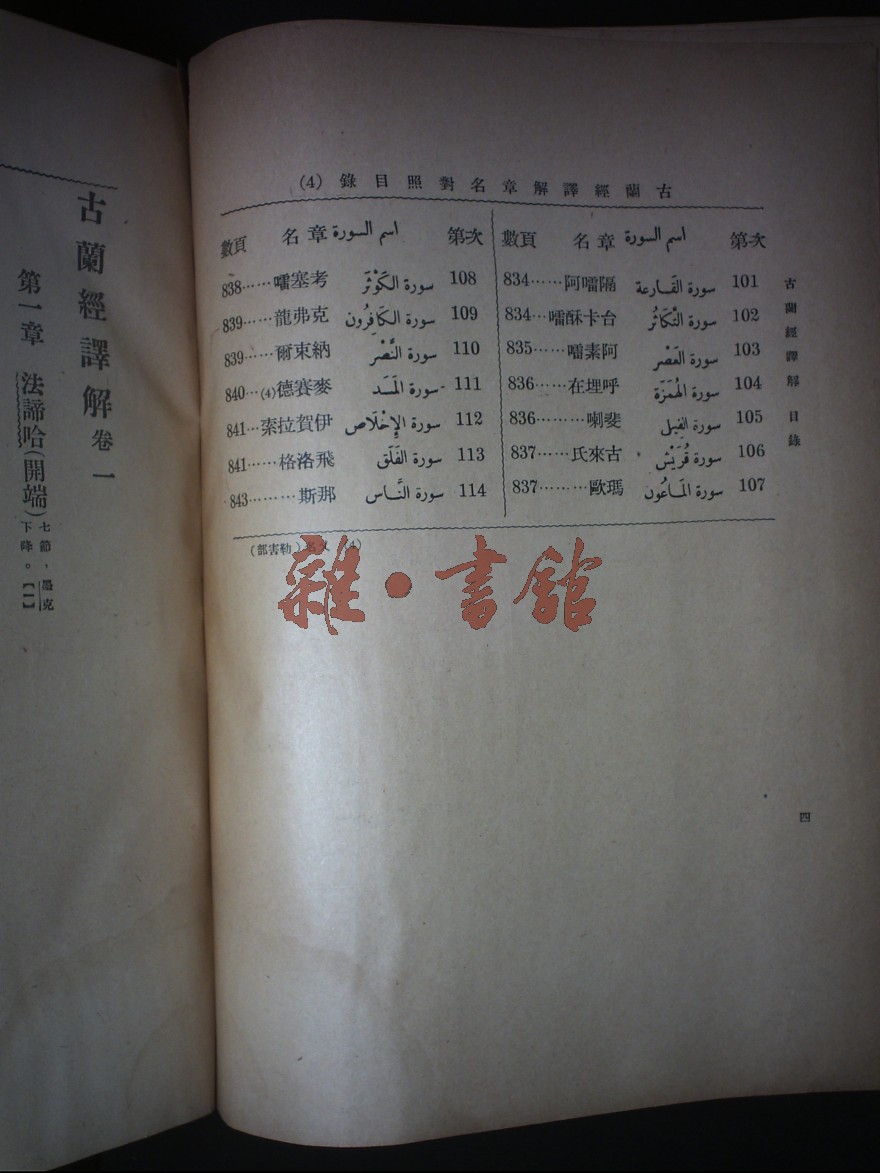 古蘭經譯解章名對照目錄 (4)
第次 اسم السورة 章名 頁數
101 سورة القارعة 隔嚅阿……834
102 سورة التَّكاثُر 台卡酥嚅…834
103 سورة العَصْر 阿素嚅……835
104 سورة الهُمَزَة 呼埋在……836
105 سورة الفِيل 斐喇………836
106 سورة قُرَيْش 古來氏……837
107 سورة المَاعُون 瑪歐………837
第次 اسم السورة 章名 頁數
108 سورة الكَوْثَر 考塞嚅……838
109 سورة الكَافِرُون 克弗龍……839
110 سورة النَّصْر 納束爾……839
111 سورة المَسَد 麥賽德(4)…840
112 سورة الإِخْلَاص 伊賀拉索…841
113 سورة الفَلَق 飛洛格……841
114 سورة النَّاس 那斯………843
(4) 又名(勒害部)
古蘭經譯解 目錄
四
古蘭經譯解卷一
第一章 法諦哈(開端)
七節,墨克
下降。【一】
雜·書館